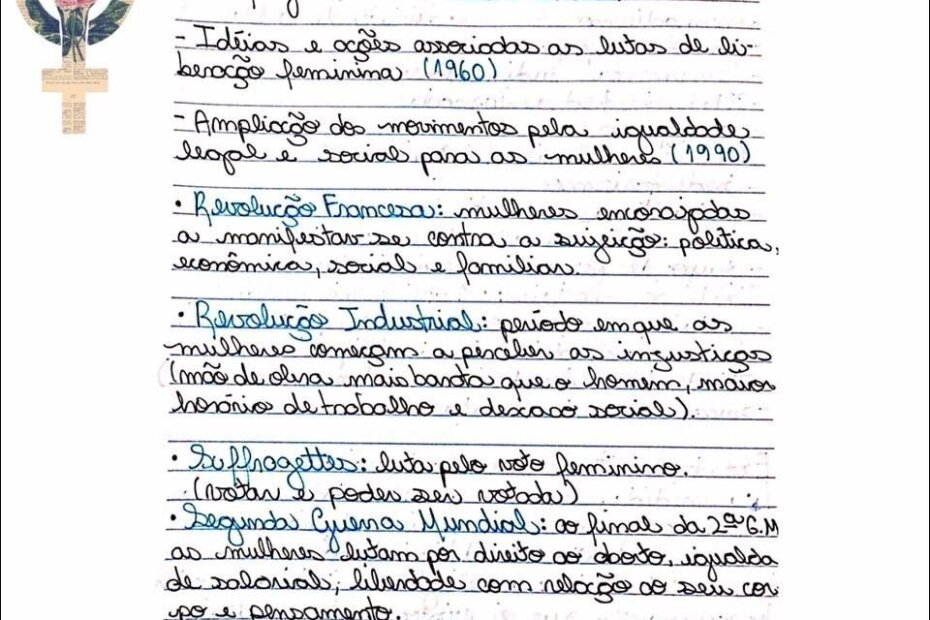 - Idéias e ações associadas as lutas de li-
beração feminina (1960)
- Ampliação dos movimentos pela igualdade
legal e social para as mulheres (1990)
• Revolução Francesa: mulheres encorajadas
a manifestar-se contra a sujeição: política,
econômica, social e familiar.
• Revolução Industrial: período em que as
mulheres começam a perceber as injustiças
(mão de obra mais barata que o homem, maior
horário de trabalho e descaso social).
• Suffragettes: luta pelo voto feminino.
(votar e poder ser votada)
• Segunda Guerra Mundial: ao final da 2ª G.M
as mulheres lutam por direito ao aborto, igualda
de salarial, liberdade com relação ao seu cor
po e pensamento.